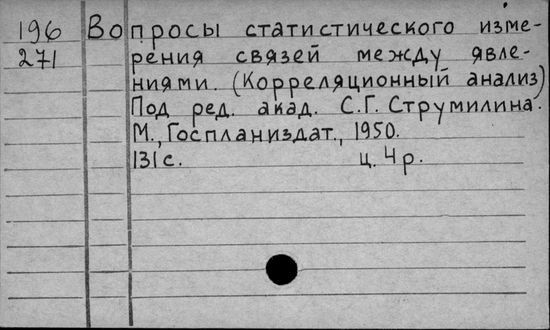 196 Вопросы статистического изме-
271 рения связей между явле-
ниями. (Корреляционный анализ)
Под ред. акад. С.Г. Струмилина.
М., Госпланиздат., 1950.
131 с. ц. 4 р.